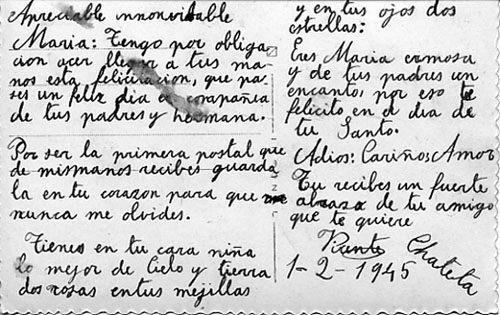 Apreciable innonvidable
Maria: Tengo por obliga
cion acer llegar a tus ma
nos esta felicitacion, que pa
ses un feliz dia e compañia
de tus padres y hermana.
Por ser la primera postal que
de mismanos recibes guarda
la en tu corazon para que me
nunca me olvides.
Tienes en tu cara niña
lo mejor de Cielo y tierra
dos rosas entus mejillas
y en tus ojos dos
estrellas:
Eres Maria ermosa
y de tus padres un
encanto, por eso te
felicito en el dia de
tu Santo.
Adios: Cariño: Amor
Tu recibes un fuerte
abrazo de tu amigo
que te quiere
Chateta
1-2-1945